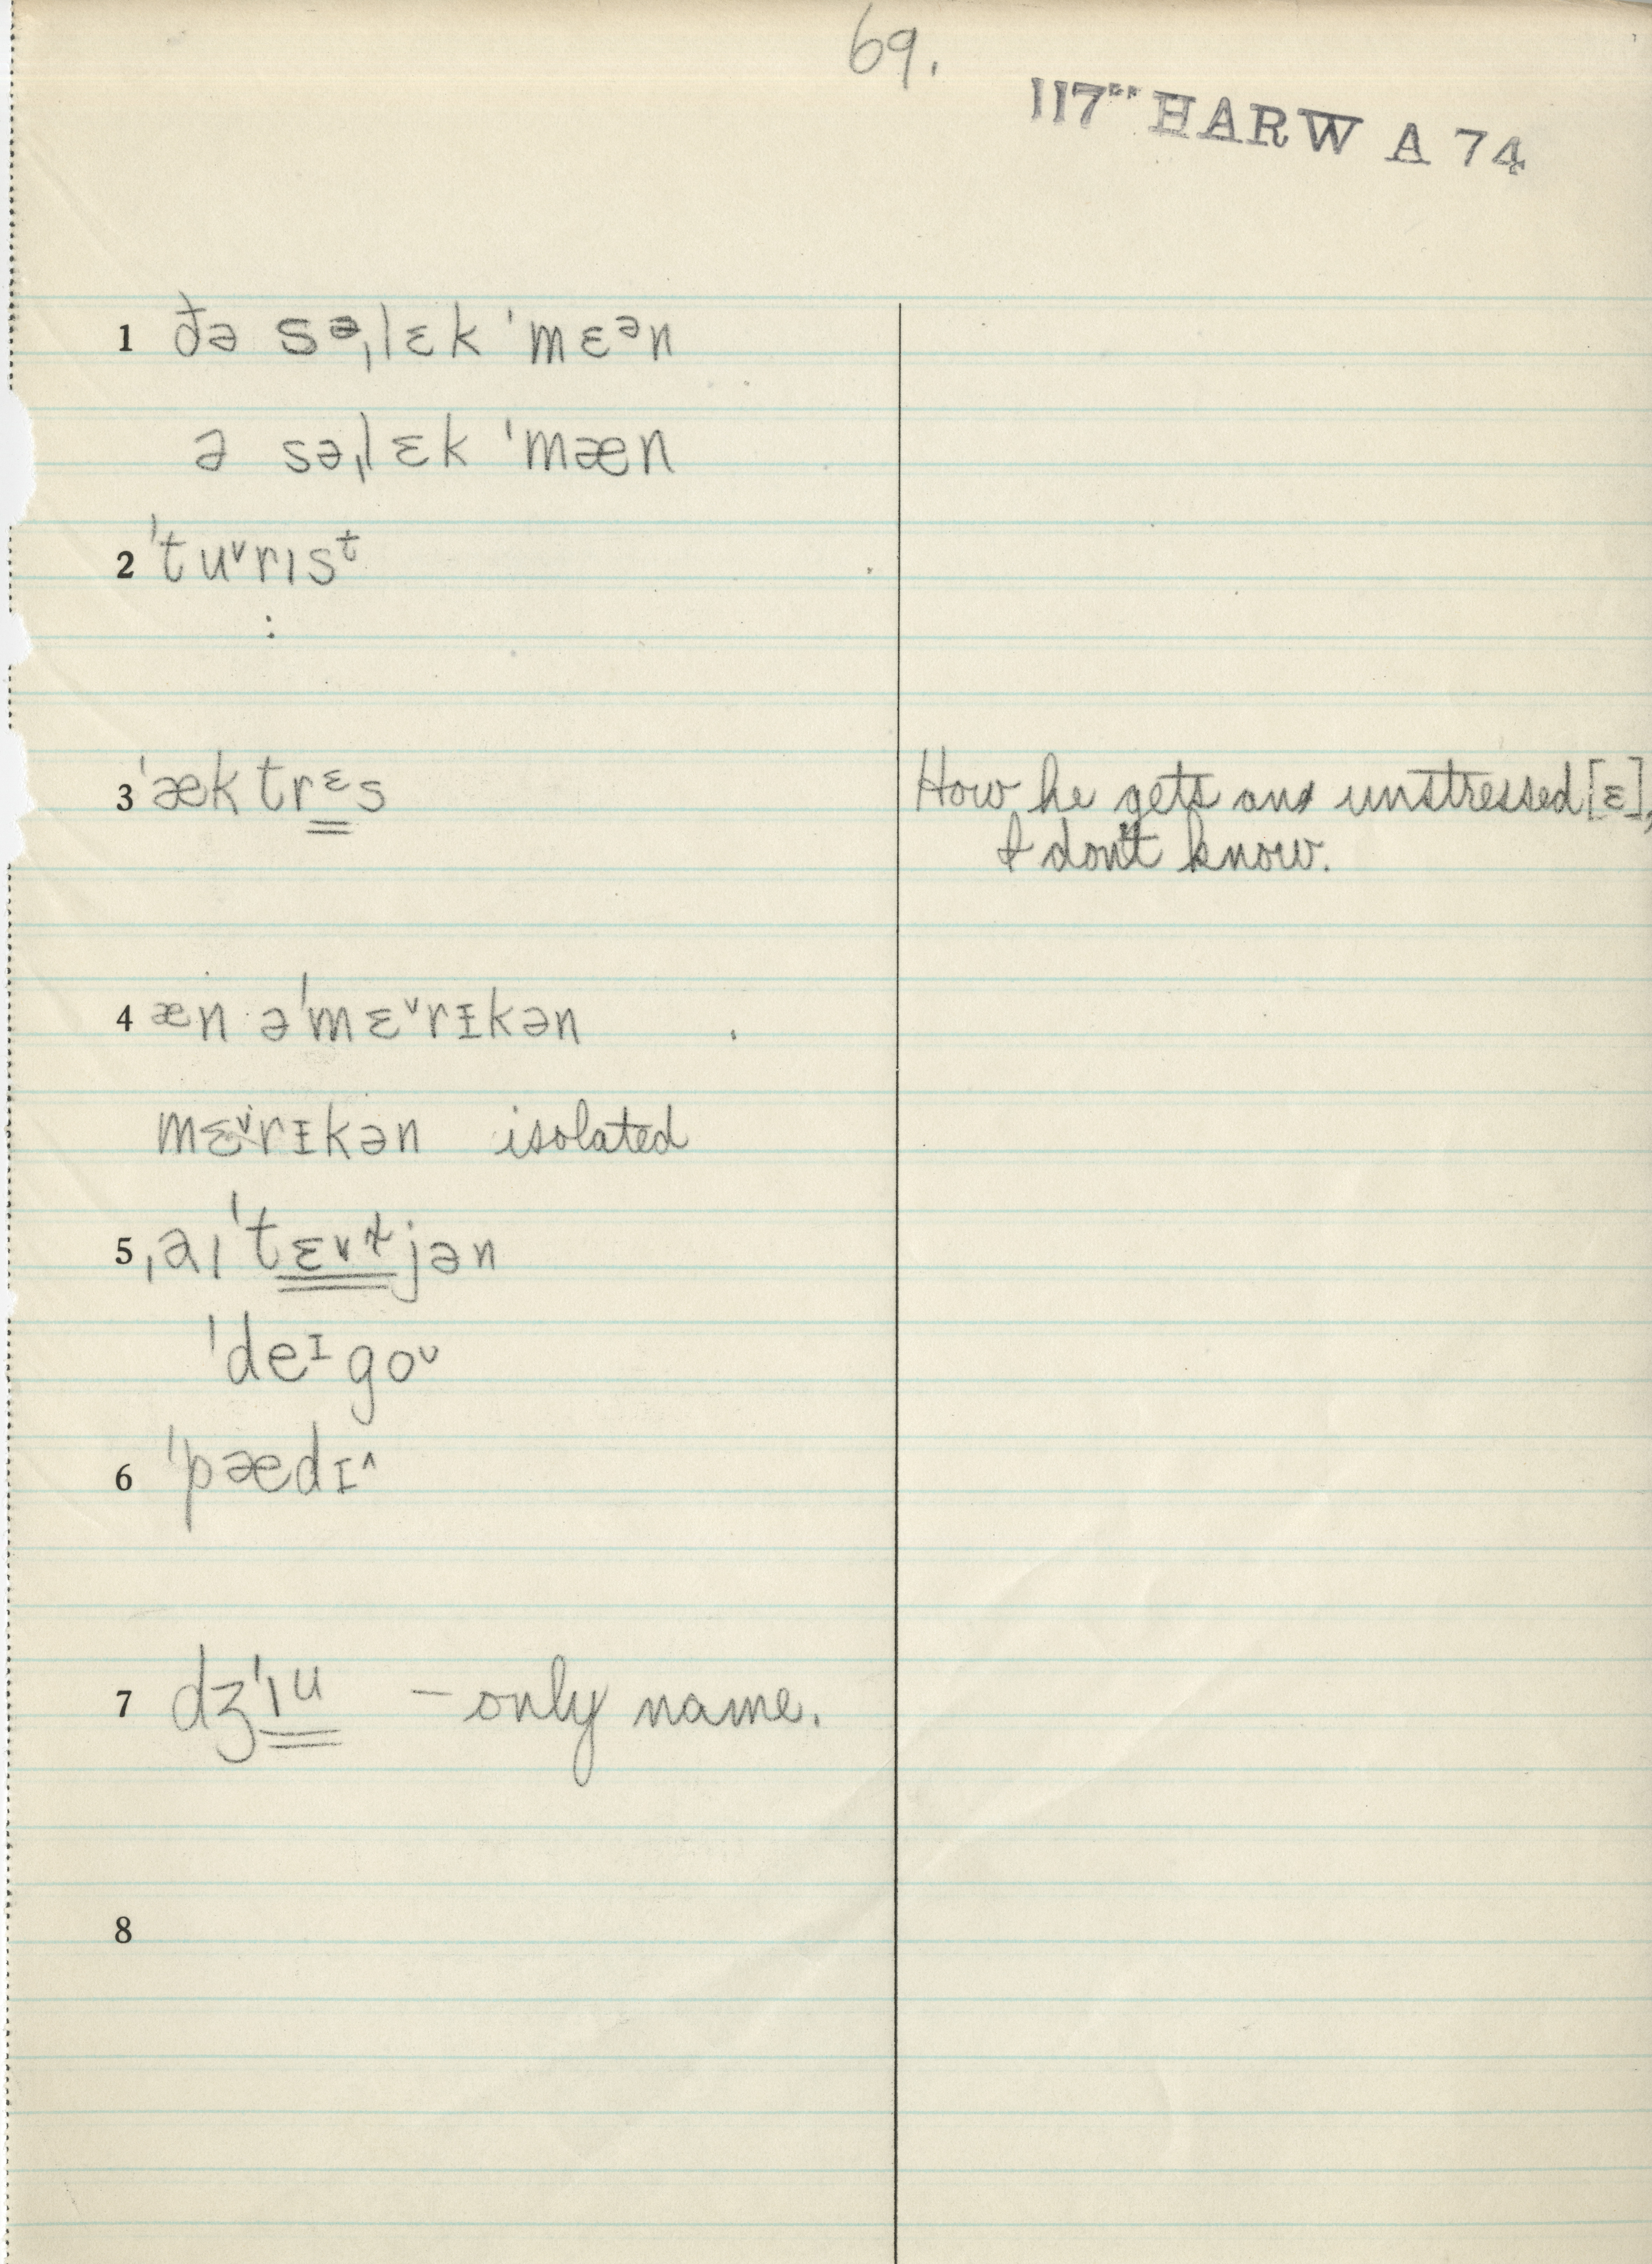 69.
117** HARW A 74
1 ðə sə,lɛk 'mɛᵊn
ə sə,lɛk 'mæn
2 'tuᵛrɪsᵗ
:
3 'æktrᵋs How he gets an unstressed [ɛ],
I don't know.
4 æn ə'mɛᵛrɪkən
mɛᵛrɪkən isolated
5 ˌaɪ'tɛᵛɫjən
'deᶦgoᶸ
6 'pædɪ^
7 dʒ'ɪᵘ – only name.
8